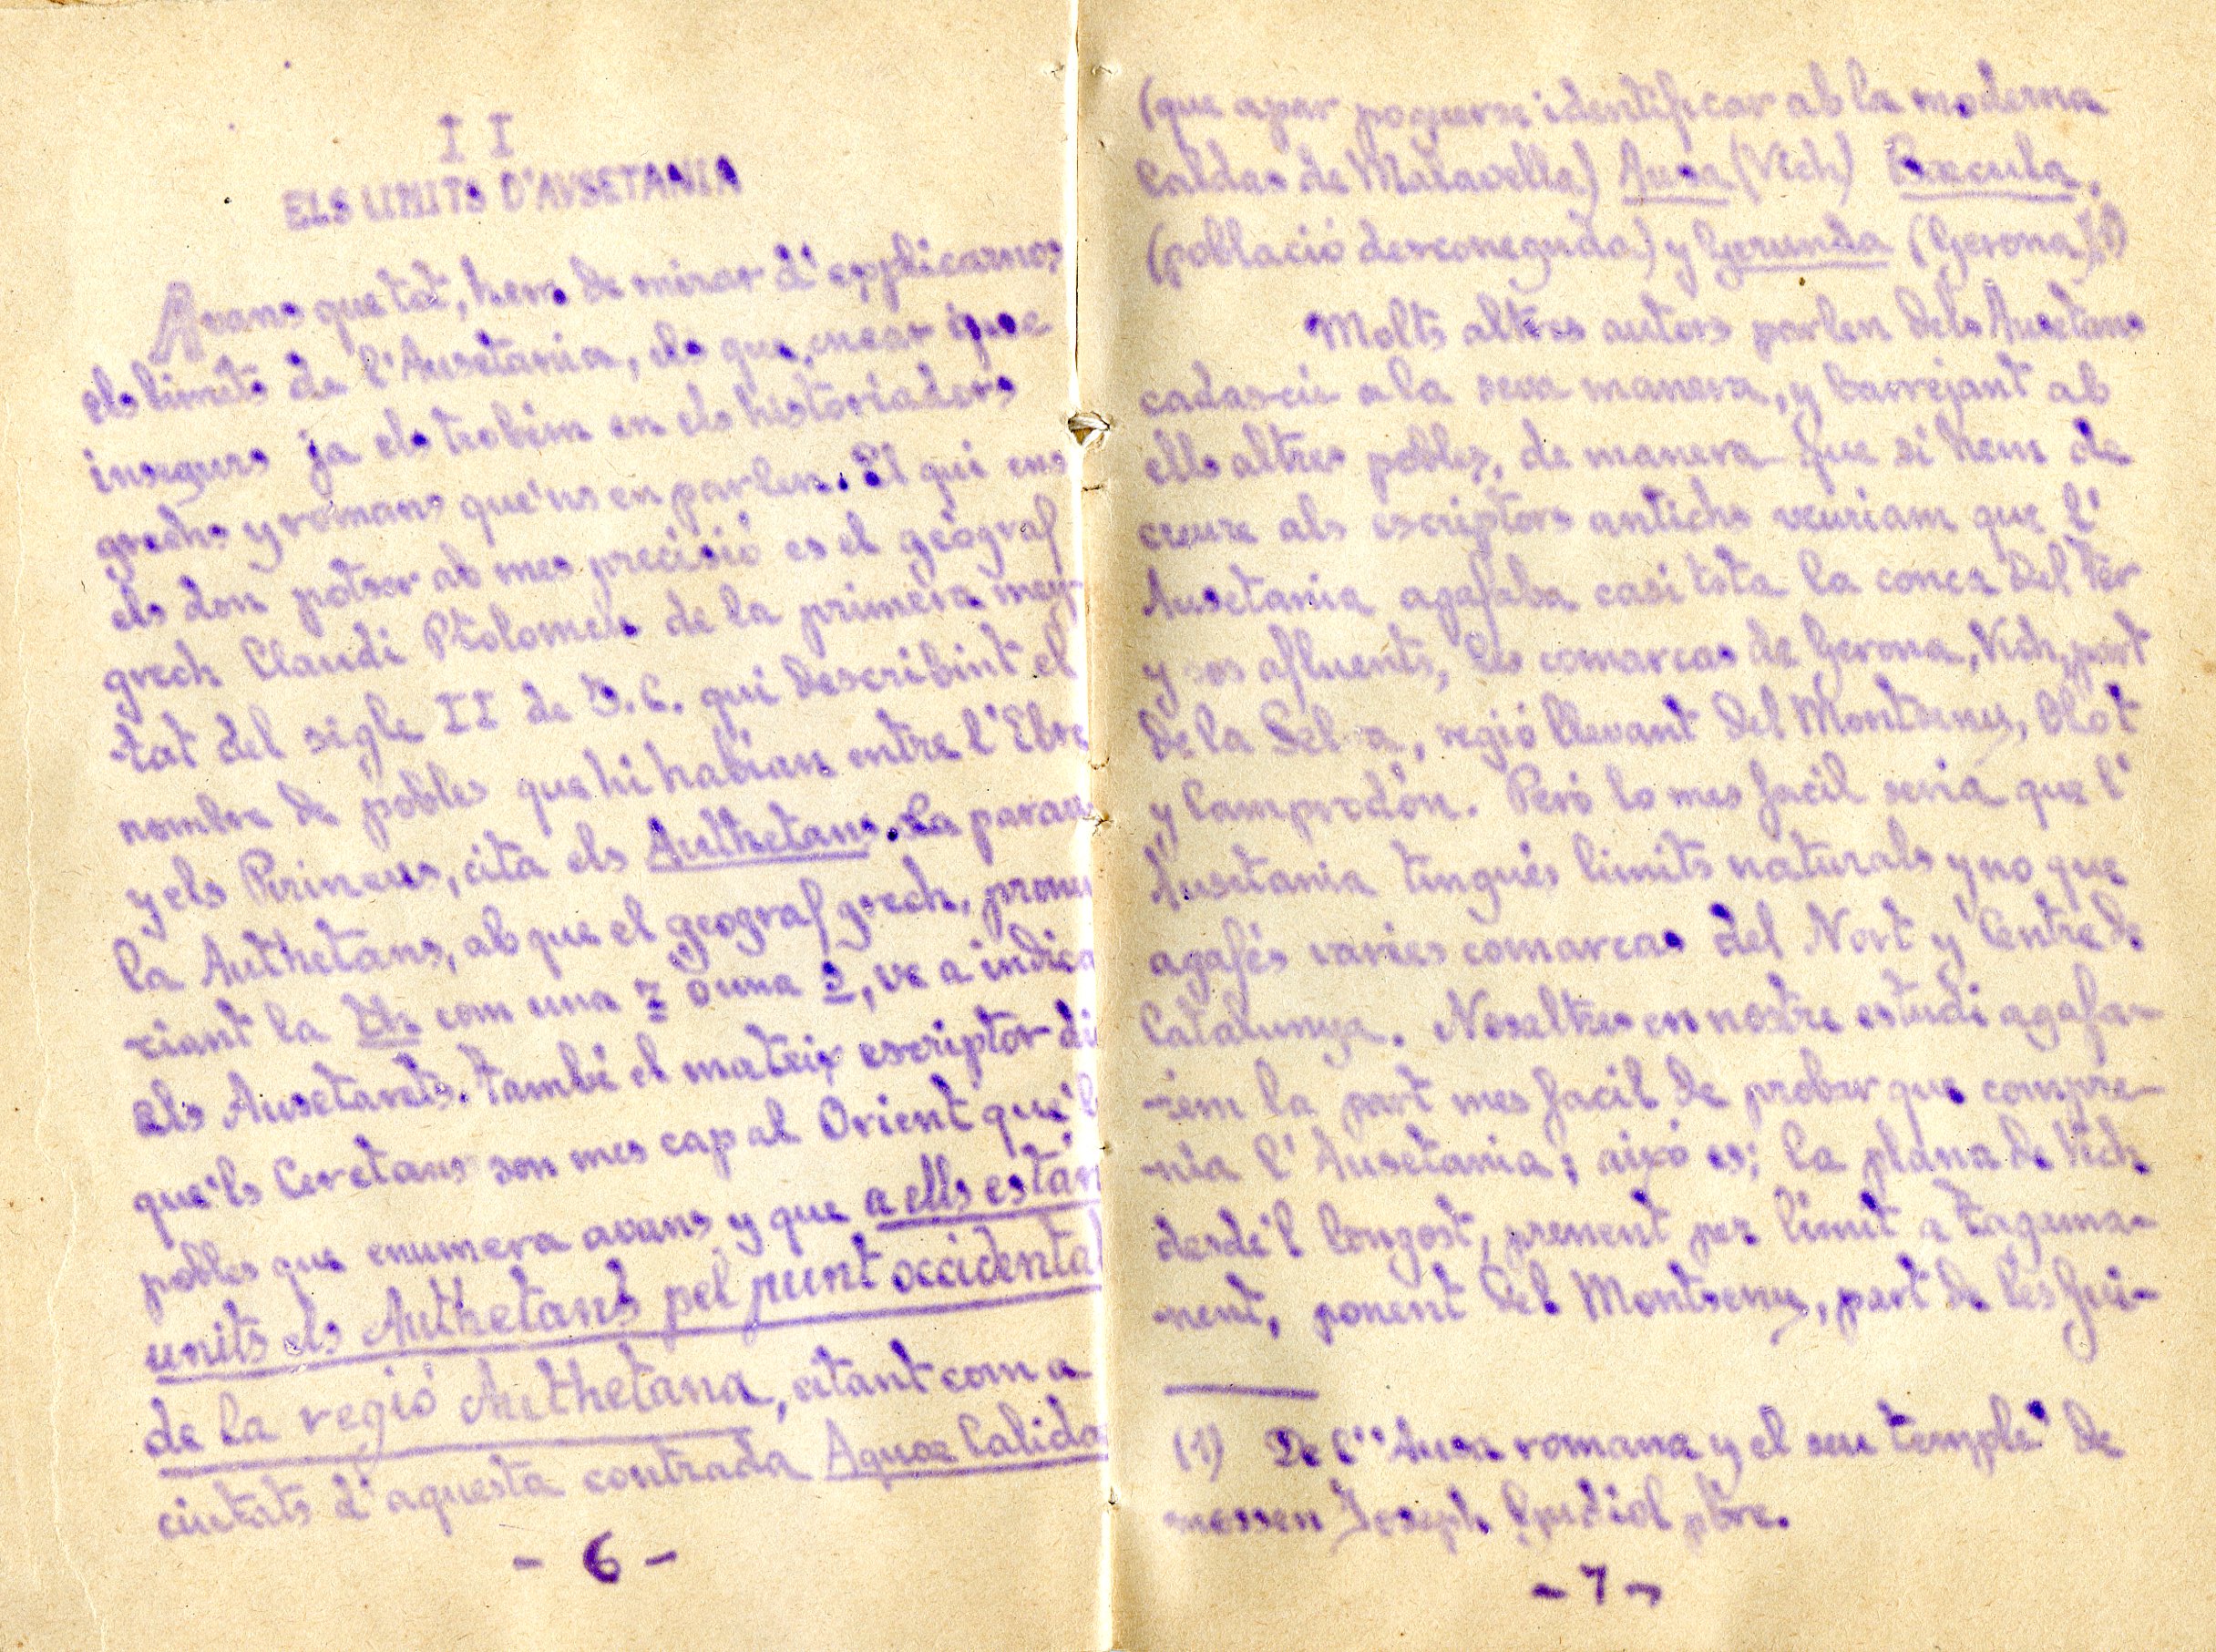 II
ELS LIMITS D'AUSETANIA
Avans que tot, hem de mirar d'applicarnos
els limits de l'Ausetania, els que, encar que
insegurs ja els trobém en els historiadors
grechs y romans que'ns en parlen. El qui ens
els don potser ab mes precisió es el geógraf
grech Claudi Ptolomeu de la primera mey-
tat del sigle II de J.C. qui describint el
nombre de pobles que hi habian entre l'Ebre
y els Pirineus, cita els Authetans. La parau-
la Authetans, ab que el geograf grech, pronun
ciant la th com una z o una s, ve a indica
els Ausetants. També el mateix escriptor di
que'ls Ceretans son mes cap al Orient que'ls
pobles que enumera avans y que a ells están
units els Authetans pel punt occidental
de la regió Authetana, citant com a
ciutats d'aquesta contrada Aquae Calida
- 6 -
(que apar poguerse identificar ab la moderna
Caldas de Malavella) Ausa (Vich)
(població desconeguda) y Gerunda (Gerona).(1)
Molts altres autors parlen dels Ausetans
cadas-cú a la seva manera, y barrejant ab
ells altres pobles, de manera que si hem de
creure als escriptors antichs veuriam que l'
Ausetania agafaba casi tota la conca del Ter
y sos afluents, les comarcas de Gerona, Vich, part
de la Selva, regió llevant del Montseny, Olot
y Camprodón. Peró lo mes facil seria que l'
Ausetania tingués limits naturals y no que
agafés varies comarcas del Nort y Centre de
Catalunya. Nosaltres en nostre estudi agafa-
-rem la part mes facil de probar que compre-
-nia l'Ausetania; aixó es; la plana de Vich
desde'l Congost, prenent per limit a Tagama-
-nent, ponent del Montseny, part de les Gui-
(1) De l'"Ausa romana y el seu temple" de
mossen Joseph Gudiol pbre.
- 7 -